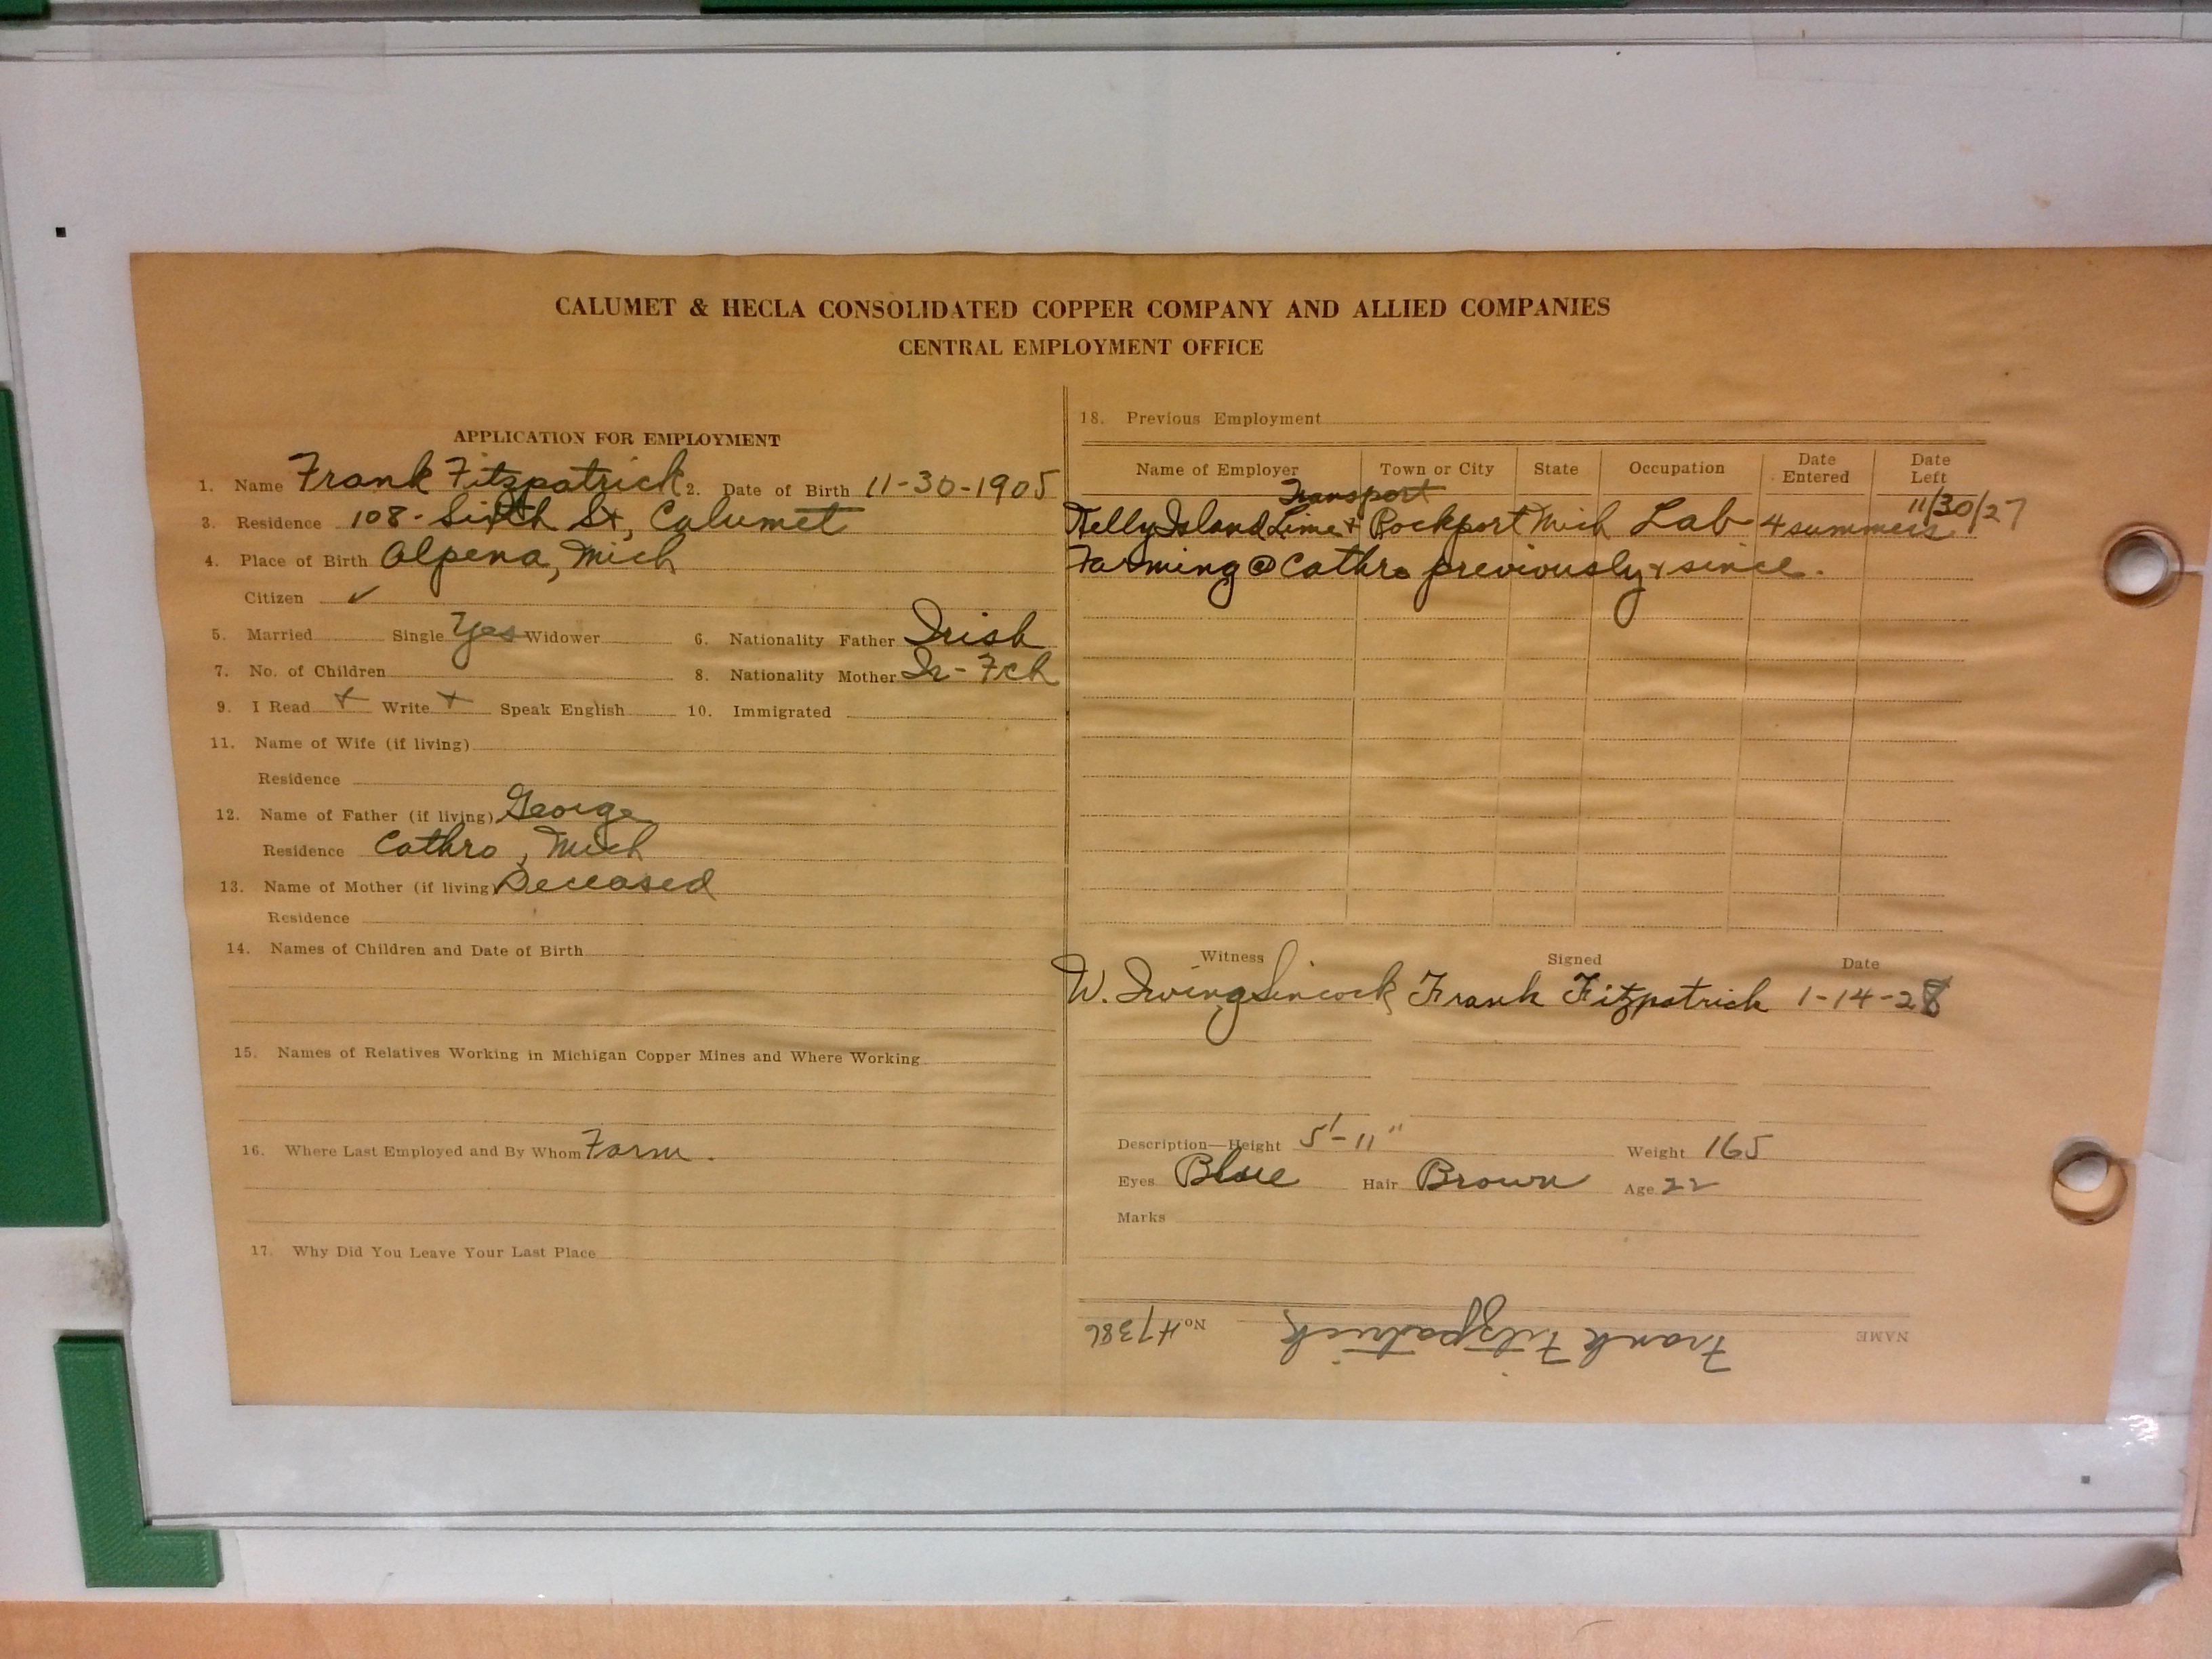 CALUMET & HECLA CONSOLIDATED COPPER COMPANY AND ALLIED COMPANIES
CENTRAL EMPLOYMENT OFFICE
APPLICATION FOR EMPLOYMENT
1. Name Frank Fitzpatrick 2. Date of Birth 11-30-1905
3. Residence 108-Sixth St, Calumet
4. Place of Birth Alpena, Mich
Citizen ✓
5. Married Single Yes Widower 6. Nationality Father Irish
7. No. of Children 8. Nationality Mother Ir-Fch
9. I Read + Write + Speak English 10. Immigrated
11. Name of Wife (if living)
Residence
12. Name of Father (if living) George
Residence Cathro, Mich
13. Name of Mother (if living) Deceased
Residence
14. Names of Children and Date of Birth
15. Names of Relatives Working in Michigan Copper Mines and Where Working
16. Where Last Employed and By Whom Farm.
17. Why Did You Leave Your Last Place
18. Previous Employment
Name of Employer Town or City State Occupation Date Entered Date Left
Transport 11/30/27
Kelly Island Lime & Rockport Mich Lab 4 summers
Farming @ Cathro previously & since.
Witness Signed Date
W. Irving Sincock Frank Fitzpatrick 1-14-28
Description—Height 5'-11" Weight 165
Eyes Blue Hair Brown Age 22
Marks
NAME Frank Fitzpatrick No. H7386